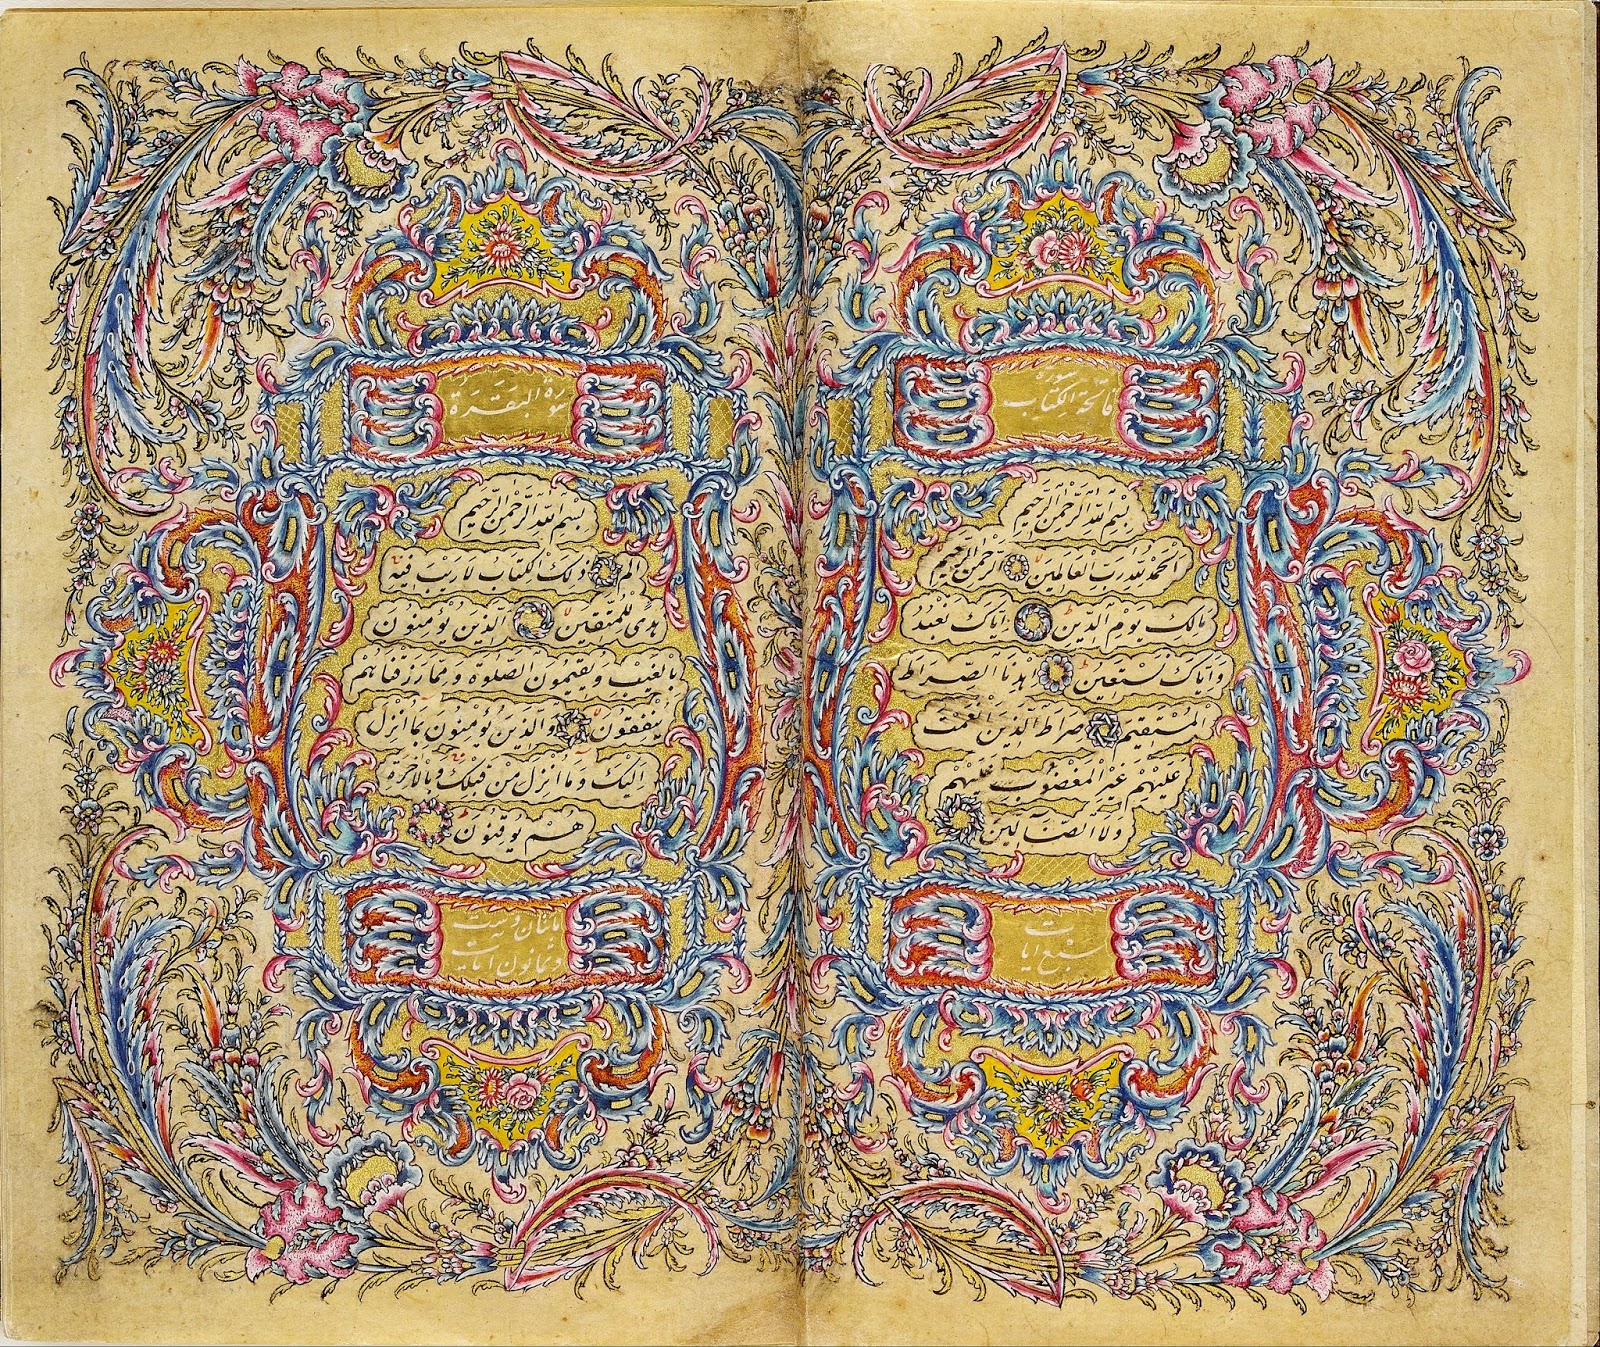 سورة
فاتحة الكتاب
بِسْمِ اللّٰهِ الرَّحْمٰنِ الرَّحِيمِ
اَلْحَمْدُ لِلّٰهِ رَبِّ الْعَالَمِينَ الرَّحْمٰنِ الرَّحِيمِ
مَالِكِ يَوْمِ الدِّينِ اِيَّاكَ نَعْبُدُ
وَاِيَّاكَ نَسْتَعِينُ اِهْدِنَا الصِّرَاطَ
الْمُسْتَقِيمَ صِرَاطَ الَّذِينَ اَنْعَمْتَ
عَلَيْهِمْ غَيْرِ الْمَغْضُوبِ عَلَيْهِمْ
وَلَا الضَّالِّينَ
سبع آيات
سورة البقرة
بِسْمِ اللّٰهِ الرَّحْمٰنِ الرَّحِيمِ
الم ذٰلِكَ الْكِتَابُ لَا رَيْبَ فِيهِ
هُدًى لِلْمُتَّقِينَ اَلَّذِينَ يُؤْمِنُونَ
بِالْغَيْبِ وَيُقِيمُونَ الصَّلٰوةَ وَمِمَّا رَزَقْنَاهُمْ
يُنْفِقُونَ وَالَّذِينَ يُؤْمِنُونَ بِمَا اُنْزِلَ
اِلَيْكَ وَمَا اُنْزِلَ مِنْ قَبْلِكَ وَبِالْاٰخِرَةِ
هُمْ يُوقِنُونَ
مائتان وست
وثمانون آيات